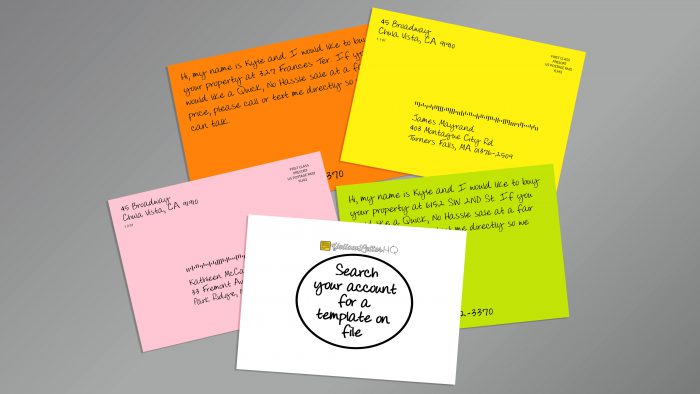 Hi, my name is Kyle and I would like to buy
your property at 327 Frances Ter. If you
would like a Quick, No Hassle sale at a fair
price, please call or text me directly so we
can talk.
3370
45 Broadway
Chula Vista, CA 91910
FIRST CLASS
PRESORT
US POSTAGE PAID
James Mayrand
403 Montague City Rd
Turners Falls, MA 01376-2509
45 Broadway
Chula Vista, CA 91910
FIRST CLASS
PRESORT
US POSTAGE PAID
Kathleen McCa
33 Fremont Av
Park Ridge,
Hi, my name is Kyle and I would like to buy
your property at 6152 SW 2ND St. If you
like a Quick, No Hassle sale at a fair
me directly so we
2-3370
YellowLetterHQ
Search
your account
for a
template on
file